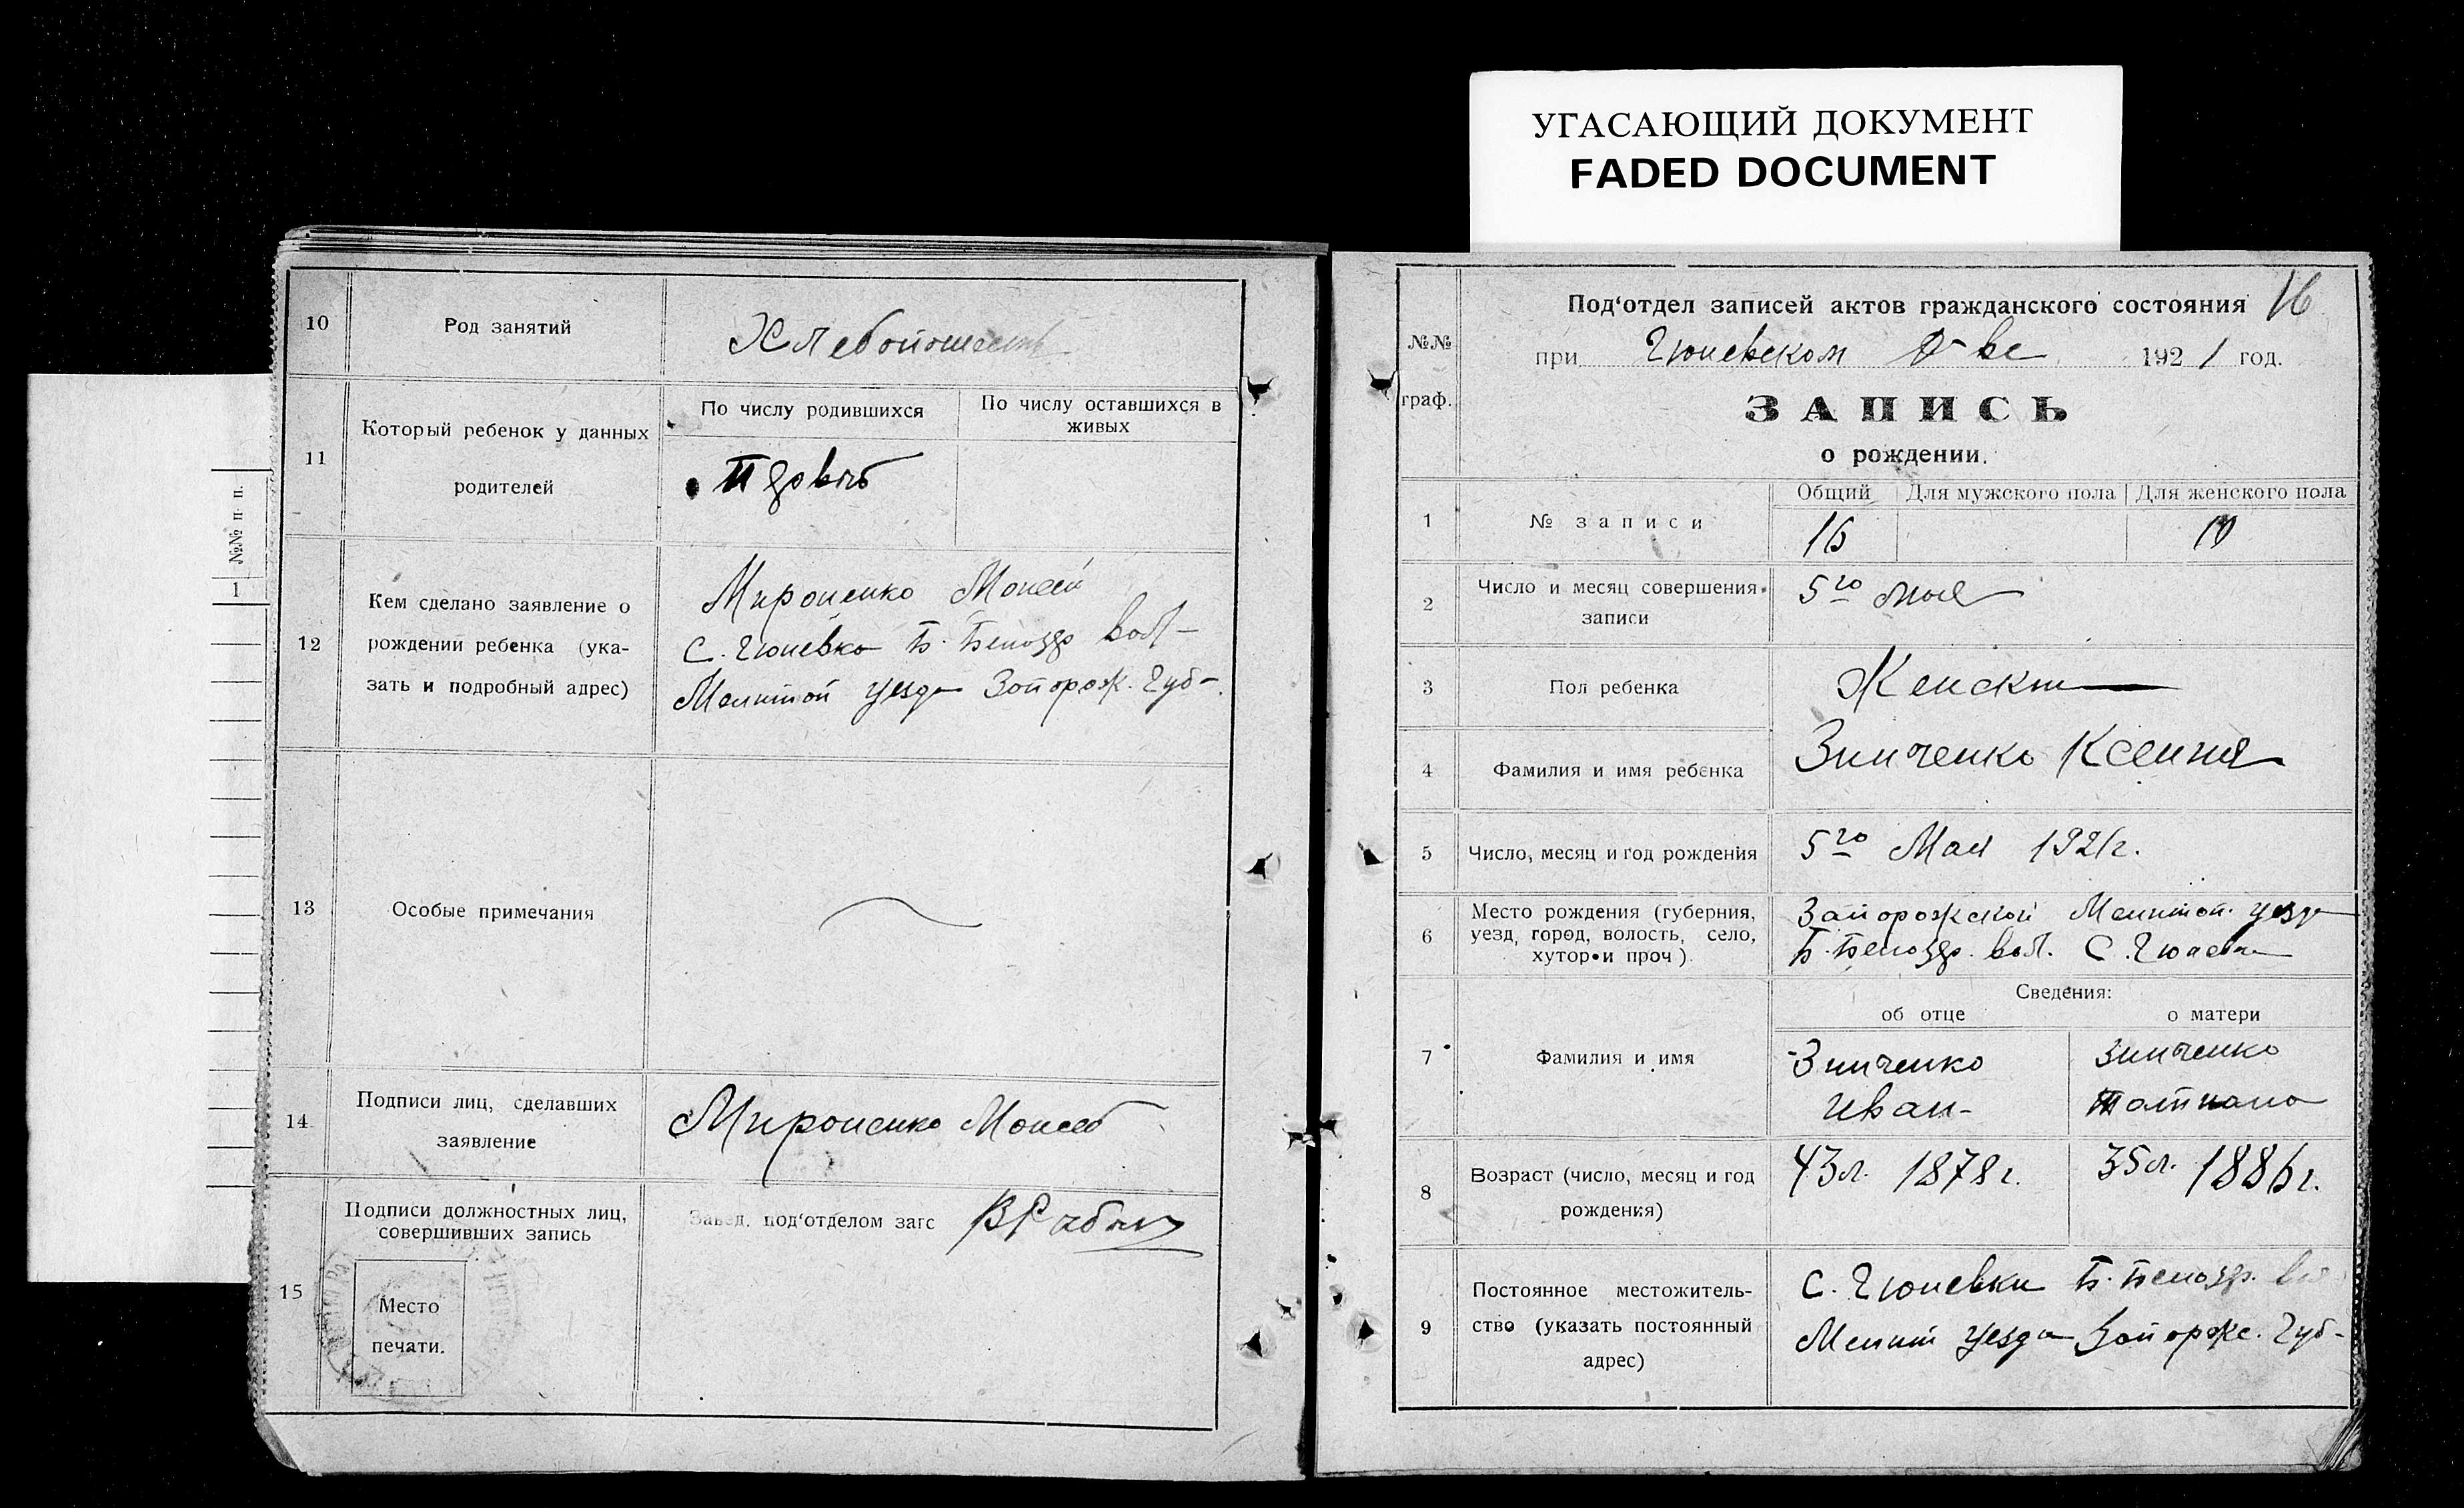 УГАСАЮЩИЙ ДОКУМЕНТ
FADED DOCUMENT
№№ п. п.
1
10
Род занятий
Хлебопашест
11
Который ребенок у данных
родителей
По числу родившихся
По числу оставшихся в
живых
12
Кем сделано заявление о
рождении ребенка (ука-
зать и подробный адрес)
Мироненко Моисей
С. Гюневка Б. Белозер вол-
Мелитоп уезда Запорож. Губ-
13
Особые примечания
14
Подписи лиц, сделавших
заявление
Мироненко Моисей
15
Подписи должностных лиц,
совершивших запись
Завед. под‘отделом загс
Место
печати.
№№
граф.
Под‘отдел записей актов гражданского состояния
16
при Гюневском О-ве 1921 год.
ЗАПИСЬ
о рождении.
1
№ записи
Общий
Для мужского пола
Для женского пола
16
10
2
Число и месяц совершения
записи
5го мая
3
Пол ребенка
Женски
4
Фамилия и имя ребенка
Зинченко Ксения
5
Число, месяц и год рождения
5го Мая 1921г.
6
Место рождения (губерния,
уезд, город, волость, село,
хутор и проч).
Запорожской Мелитоп. уезда
Б. Белозер. вол. С. Гюневка
7
Фамилия и имя
Сведения:
об отце
о матери
Зинченко
Иван-
Зинченко
Татиана
8
Возраст (число, месяц и год
рождения)
43л. 1878г.
35л. 1886г.
9
Постоянное местожитель-
ство (указать постоянный
адрес)
С. Гюневки Б. Белозер. во
Мелит уезда Запорож. Губ-